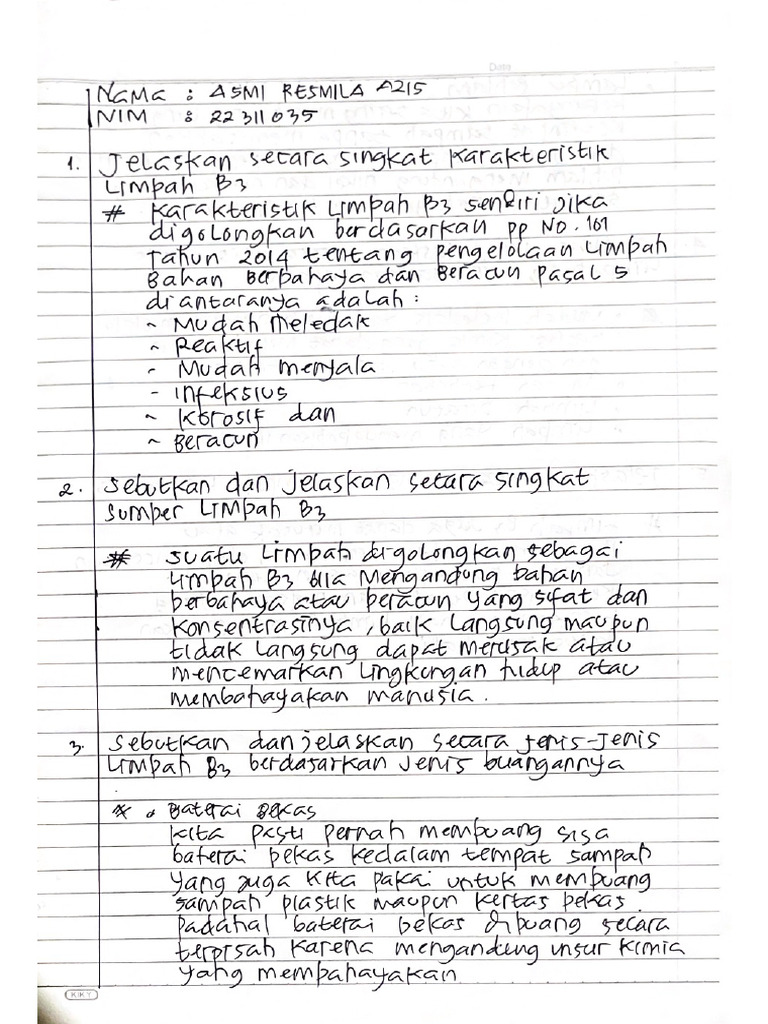 Date
Nama : ASMI RESMILA AZIS
NIM : 22311035
1. Jelaskan secara singkat karakteristik
Limpah B3
# Karakteristik Limpah B3 sendiri jika
digolongkan berdasarkan pp No. 101
Tahun 2014 tentang pengelolaan Limpah
Bahan Berbahaya dan Beracun pasal 5
diantaranya adalah :
~ Mudah meledak
~ Reaktif
~ Mudah menyala
- infeksius
~ Korosif dan
~ Beracun
2. Sebutkan dan jelaskan setara singkat
sumber Limpah B3
# suatu Limpah digolongkan sebagai
Limpah B3 bila Mengandung bahan
berbahaya atau beracun yang sifat dan
Konsentrasinya, baik langsung maupun
tidak langsung dapat merusak atau
mencemarkan lingkungan hidup atau
membahayakan manusia.
3. Sebutkan dan jelaskan secara jenis-Jenis
Limpah B3 berdasarkan Jenis buangannya
* • Baterai Bekas
Kita pasti pernah membuang sisa
baterai bekas kedalam tempat sampah
yang juga kita pakai untuk membuang
sampah plastik maupun kertas bekas.
Padahal baterai bekas dibuang secara
terpisah karena mengandung unsur kimia
yang membahayakan
KIKY